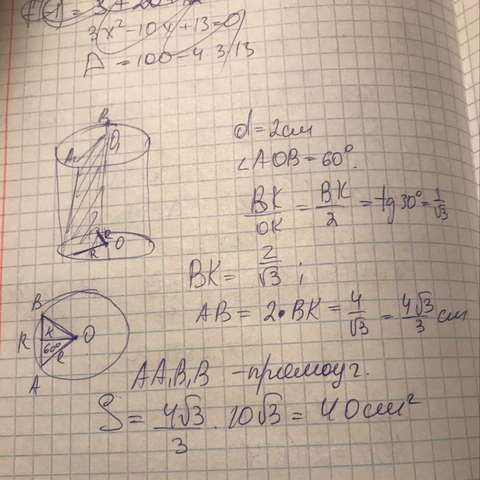 3x² - 10x + 13 = 0
D = 100 - 4·3·13
B₁
O₁
A₁
O
R
d = 2см
∠AOB = 60°.
BK/OK = BK/2 = tg 30° = 1/√3
BK = 2/√3 ;
AB = 2·BK = 4/√3 = 4√3/3 см
B
K
R
60°
O
R
A
AA₁B₁B - прямоуг.
S = 4√3/3 · 10√3 = 40см²